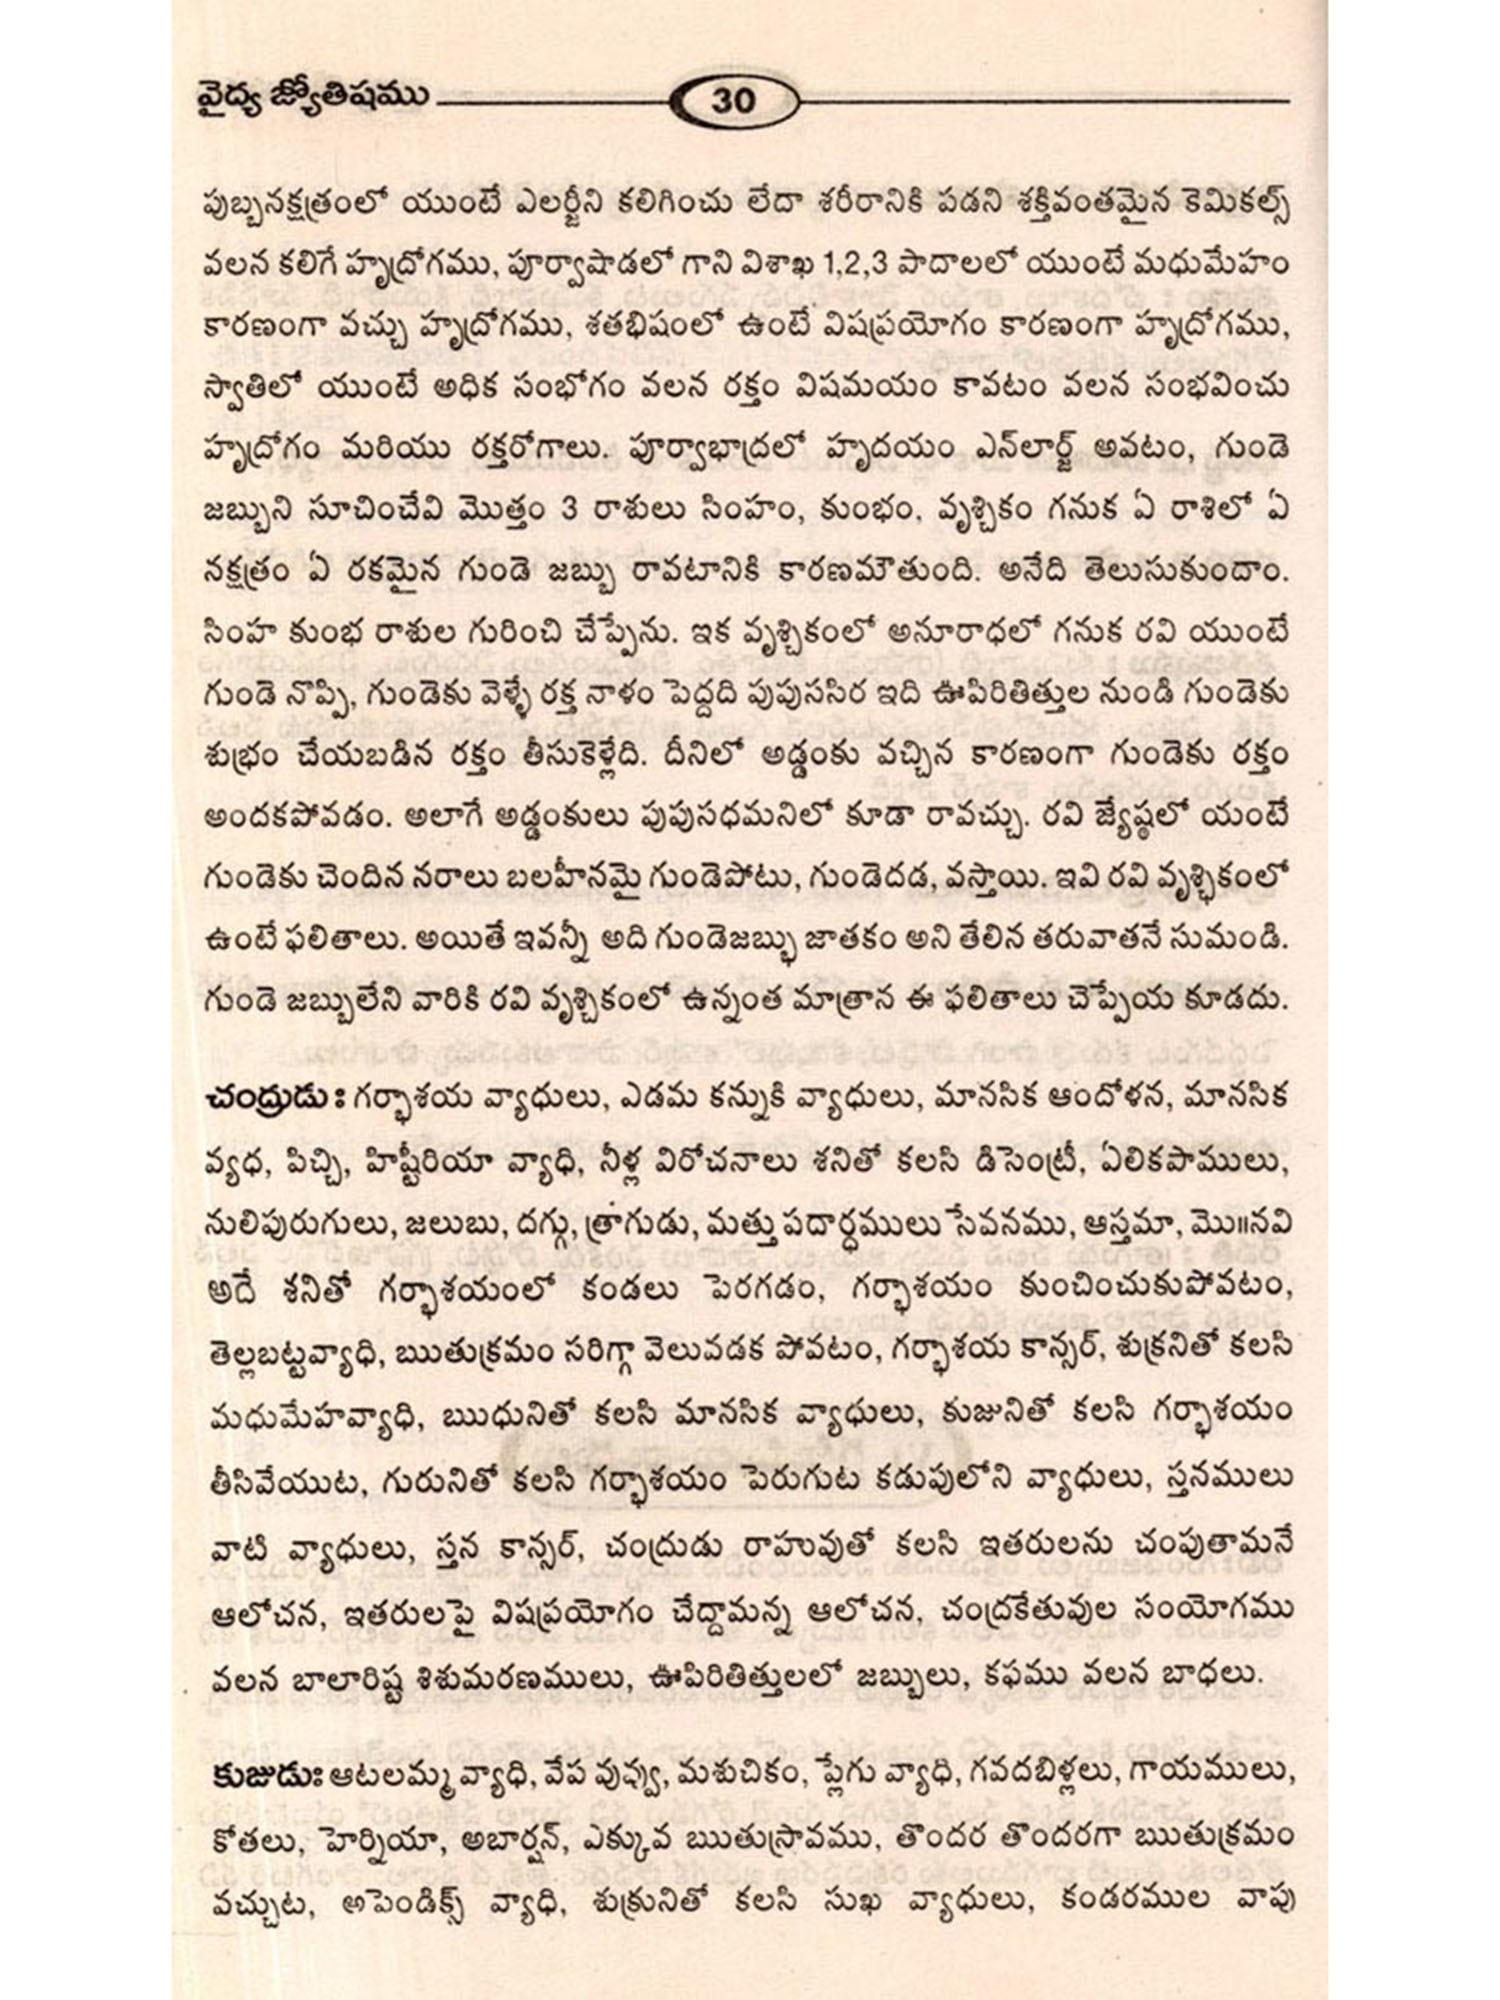 వైద్య జ్యోతిషము 30
పుబ్బనక్షత్రంలో యుంటే ఎలర్జీని కలిగించు లేదా శరీరానికి పడని శక్తివంతమైన కెమికల్స్
వలన కలిగే హృద్రోగము, పూర్వాషాడలో గాని విశాఖ 1,2,3 పాదాలలో యుంటే మధుమేహం
కారణంగా వచ్చు హృద్రోగము, శతభిషంలో ఉంటే విషప్రయోగం కారణంగా హృద్రోగము,
స్వాతిలో యుంటే అధిక సంభోగం వలన రక్తం విషమయం కావటం వలన సంభవించు
హృద్రోగం మరియు రక్తరోగాలు. పూర్వాభాద్రలో హృదయం ఎన్‌లార్జ్ అవటం, గుండె
జబ్బుని సూచించేవి మొత్తం 3 రాశులు సింహం, కుంభం, వృశ్చికం గనుక ఏ రాశిలో ఏ
నక్షత్రం ఏ రకమైన గుండె జబ్బు రావటానికి కారణమౌతుంది. అనేది తెలుసుకుందాం.
సింహ కుంభ రాశుల గురించి చేప్పేను. ఇక వృశ్చికంలో అనూరాధలో గనుక రవి యుంటే
గుండె నొప్పి, గుండెకు వెళ్ళే రక్త నాళం పెద్దది పుపుససిర ఇది ఊపిరితిత్తుల నుండి గుండెకు
శుభ్రం చేయబడిన రక్తం తీసుకెళ్లేది. దీనిలో అడ్డంకు వచ్చిన కారణంగా గుండెకు రక్తం
అందకపోవడం. అలాగే అడ్డంకులు పుపుసధమనిలో కూడా రావచ్చు. రవి జ్యేష్ఠలో యంటే
గుండెకు చెందిన నరాలు బలహీనమై గుండెపోటు, గుండెదడ, వస్తాయి. ఇవి రవి వృశ్చికంలో
ఉంటే ఫలితాలు. అయితే ఇవన్నీ అది గుండెజబ్భు జాతకం అని తేలిన తరువాతనే సుమండి.
గుండె జబ్బులేని వారికి రవి వృశ్చికంలో ఉన్నంత మాత్రాన ఈ ఫలితాలు చెప్పేయ కూడదు.
చంద్రుడు: గర్భాశయ వ్యాధులు, ఎడమ కన్నుకి వ్యాధులు, మానసిక ఆందోళన, మానసిక
వ్యధ, పిచ్చి, హిష్టీరియా వ్యాధి, నీళ్ల విరోచనాలు శనితో కలసి డిసెంట్రీ, ఏలికపాములు,
నులిపురుగులు, జలుబు, దగ్గు, త్రాగుడు, మత్తు పదార్థములు సేవనము, ఆస్తమా, మొ॥నవి
అదే శనితో గర్భాశయంలో కండలు పెరగడం, గర్భాశయం కుంచించుకుపోవటం,
తెల్లబట్టవ్యాధి, ఋతుక్రమం సరిగ్గా వెలువడక పోవటం, గర్భాశయ కాన్సర్, శుక్రనితో కలసి
మధుమేహవ్యాధి, ఋధునితో కలసి మానసిక వ్యాధులు, కుజునితో కలసి గర్భాశయం
తీసివేయుట, గురునితో కలసి గర్భాశయం పెరుగుట కడుపులోని వ్యాధులు, స్తనములు
వాటి వ్యాధులు, స్తన కాన్సర్, చంద్రుడు రాహువుతో కలసి ఇతరులను చంపుతామనే
ఆలోచన, ఇతరులపై విషప్రయోగం చేద్దామన్న ఆలోచన, చంద్రకేతువుల సంయోగము
వలన బాలారిష్ట శిశుమరణములు, ఊపిరితిత్తులలో జబ్బులు, కఫము వలన బాధలు.
కుజుడు: ఆటలమ్మ వ్యాధి, వేప పువ్వు, మశుచికం, ప్లేగు వ్యాధి, గవదబిళ్లలు, గాయములు,
కోతలు, హెర్నియా, అబార్షన్, ఎక్కువ ఋతుస్రావము, తొందర తొందరగా ఋతుక్రమం
వచ్చుట, అపెండిక్స్ వ్యాధి, శుక్రునితో కలసి సుఖ వ్యాధులు, కండరముల వాపు